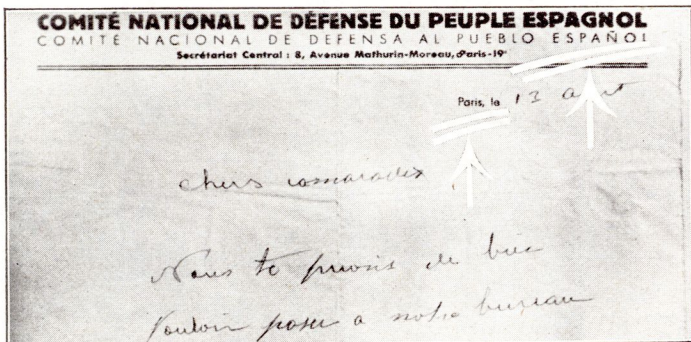 COMITÉ NATIONAL DE DÉFENSE DU PEUPLE ESPAGNOL
COMITÉ NACIONAL DE DEFENSA AL PUEBLO ESPAÑOL
Secrétariat Central : 8, Avenue Mathurin-Moreau, Paris-19e
Paris, le 13 août
chers camarades
Nous te prions de bien
vouloir passer a notre bureau